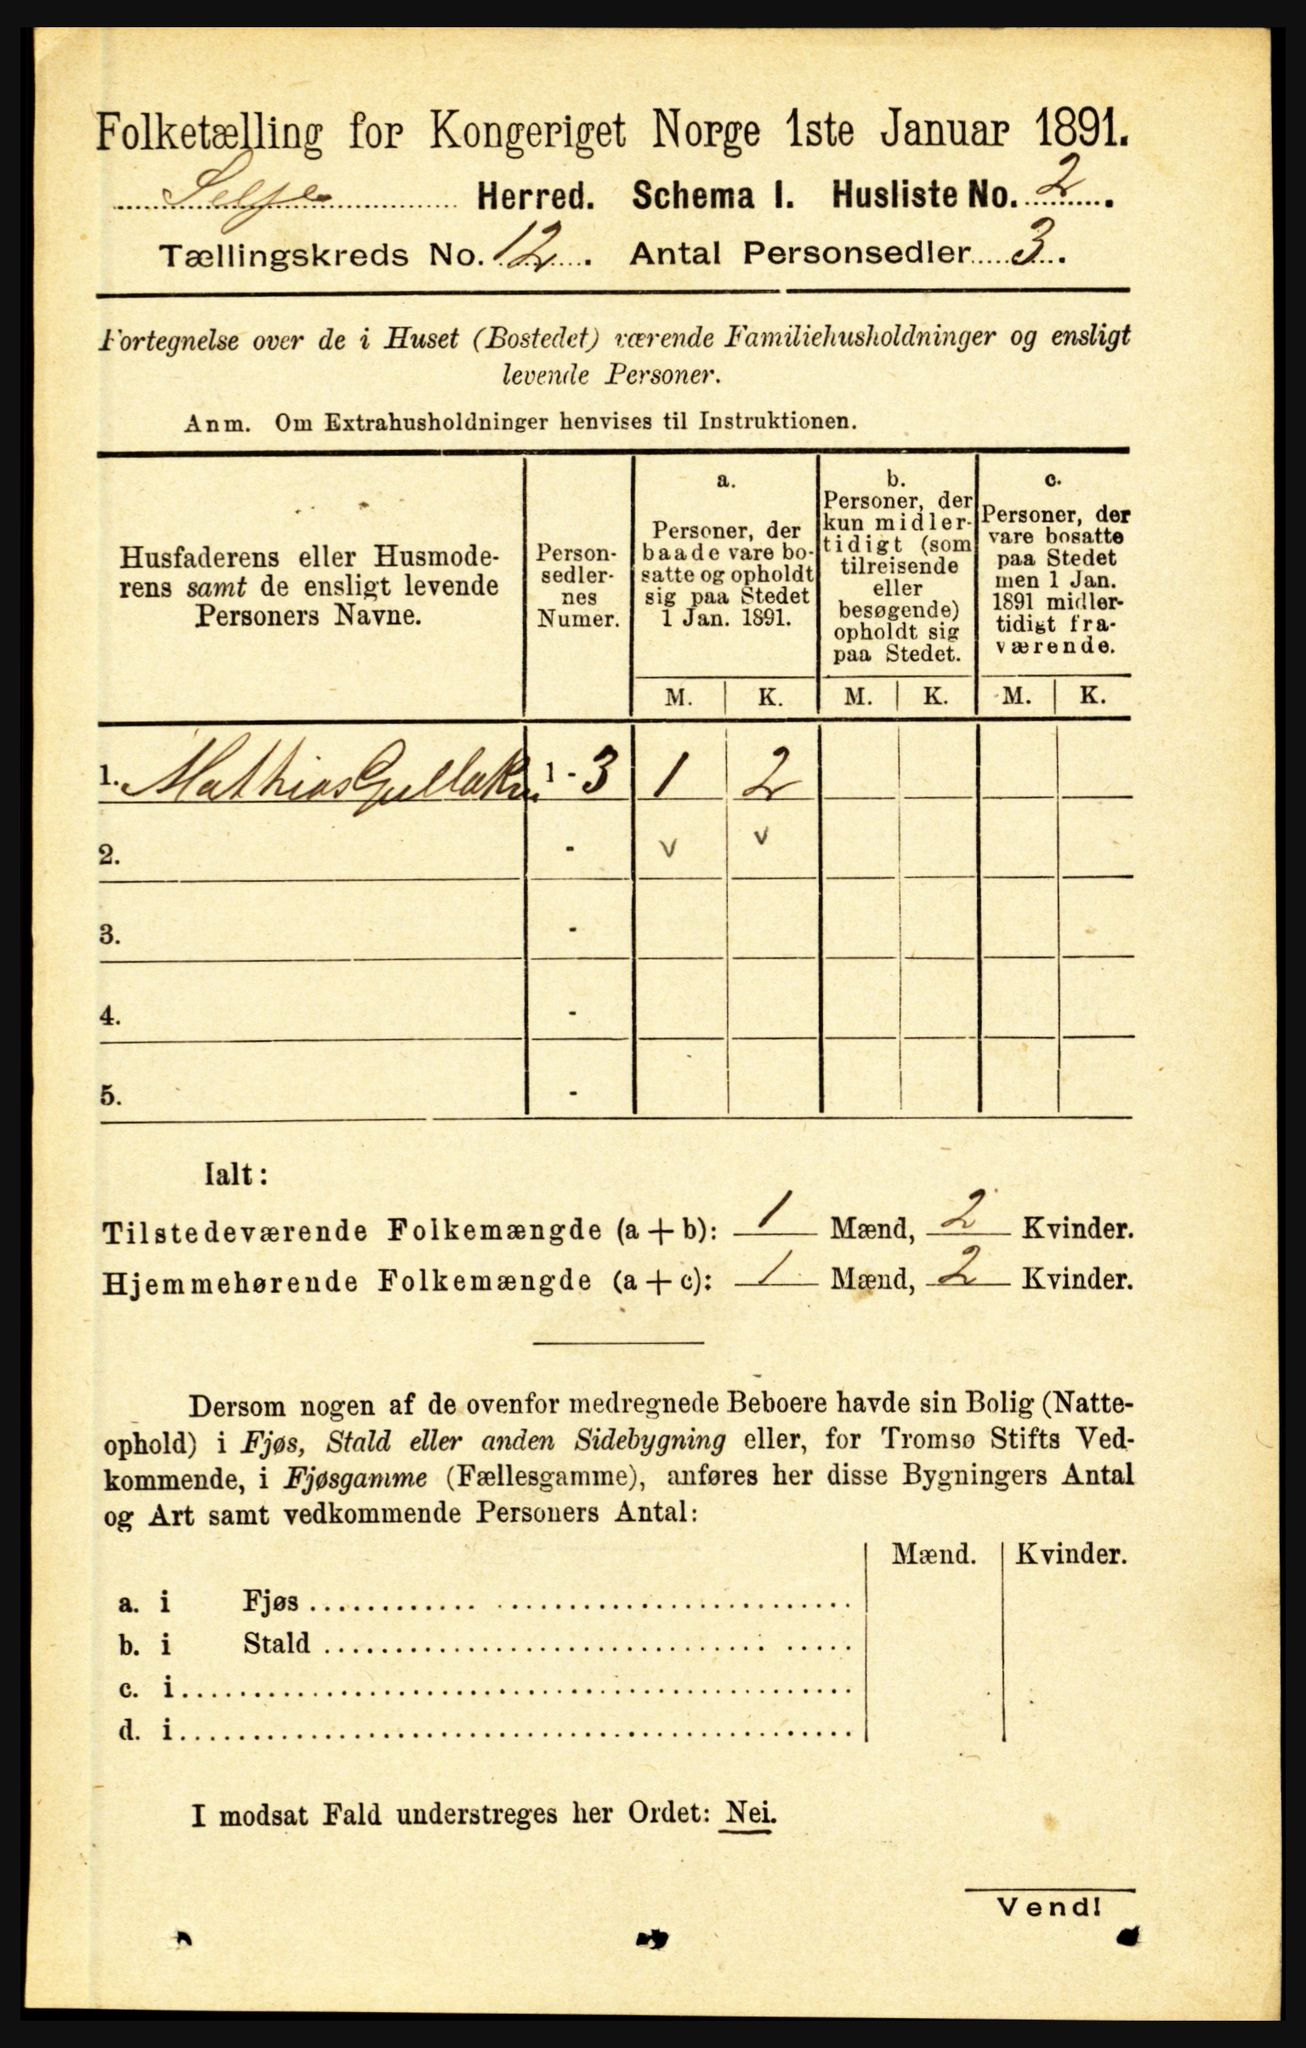 Folketælling for Kongeriget Norge 1ste Januar 1891.
Selje Herred. Schema I. Husliste No. 2.
Tællingskreds No. 12. Antal Personsedler 3.
Fortegnelse over de i Huset (Bostedet) værende Familiehusholdninger og ensligt
levende Personer.
Anm. Om Extrahusholdninger henvises til Instruktionen.
Husfaderens eller Husmode-
rens samt de ensligt levende
Personers Navne.
Person-
sedler-
nes
Numer.
a.
Personer, der
baade vare bo-
satte og opholdt
sig paa Stedet
1 Jan. 1891.
b.
Personer, der
kun midler-
tidigt (som
tilreisende
eller
besøgende)
opholdt sig
paa Stedet.
c.
Personer, der
vare bosatte
paa Stedet
men 1 Jan.
1891 midler-
tidigt fra-
værende.
M. K. M. K. M. K.
1. Mathias 1 - 3 1 2
2. - v v
3. -
4. -
5. -
Ialt:
Tilstedeværende Folkemængde (a + b): 1 Mænd, 2 Kvinder.
Hjemmehørende Folkemængde (a + c): 1 Mænd, 2 Kvinder.
Dersom nogen af de ovenfor medregnede Beboere havde sin Bolig (Natte-
ophold) i Fjøs, Stald eller anden Sidebygning eller, for Tromsø Stifts Ved-
kommende, i Fjøsgamme (Fællesgamme), anføres her disse Bygningers Antal
og Art samt vedkommende Personers Antal:
Mænd. Kvinder.
a. i Fjøs
b. i Stald
c. i
d. i
I modsat Fald understreges her Ordet: Nei.
Vend!